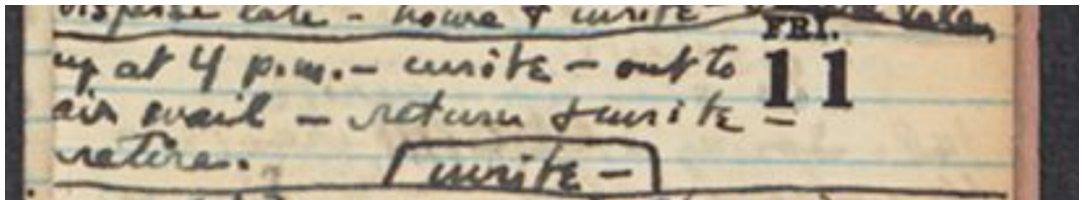 late - home & write
FRI.
11
up at 4 p.m. - write - out to
air mail - return & write -
retire.
write -